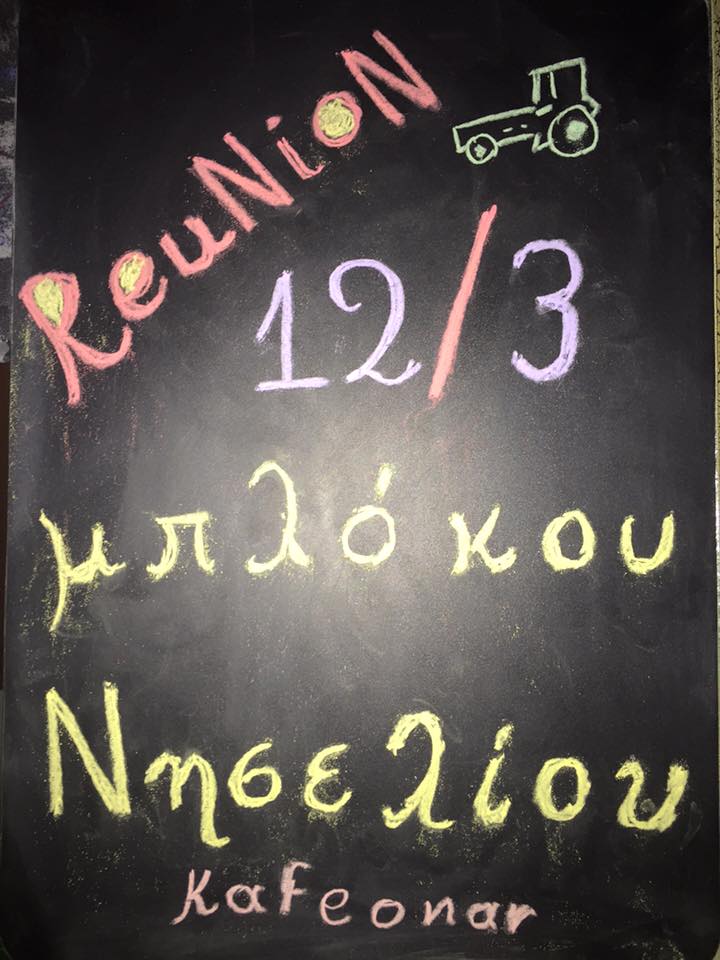 ReuNioN
12/3
μπλόκου
Νησελίου
kafeonar